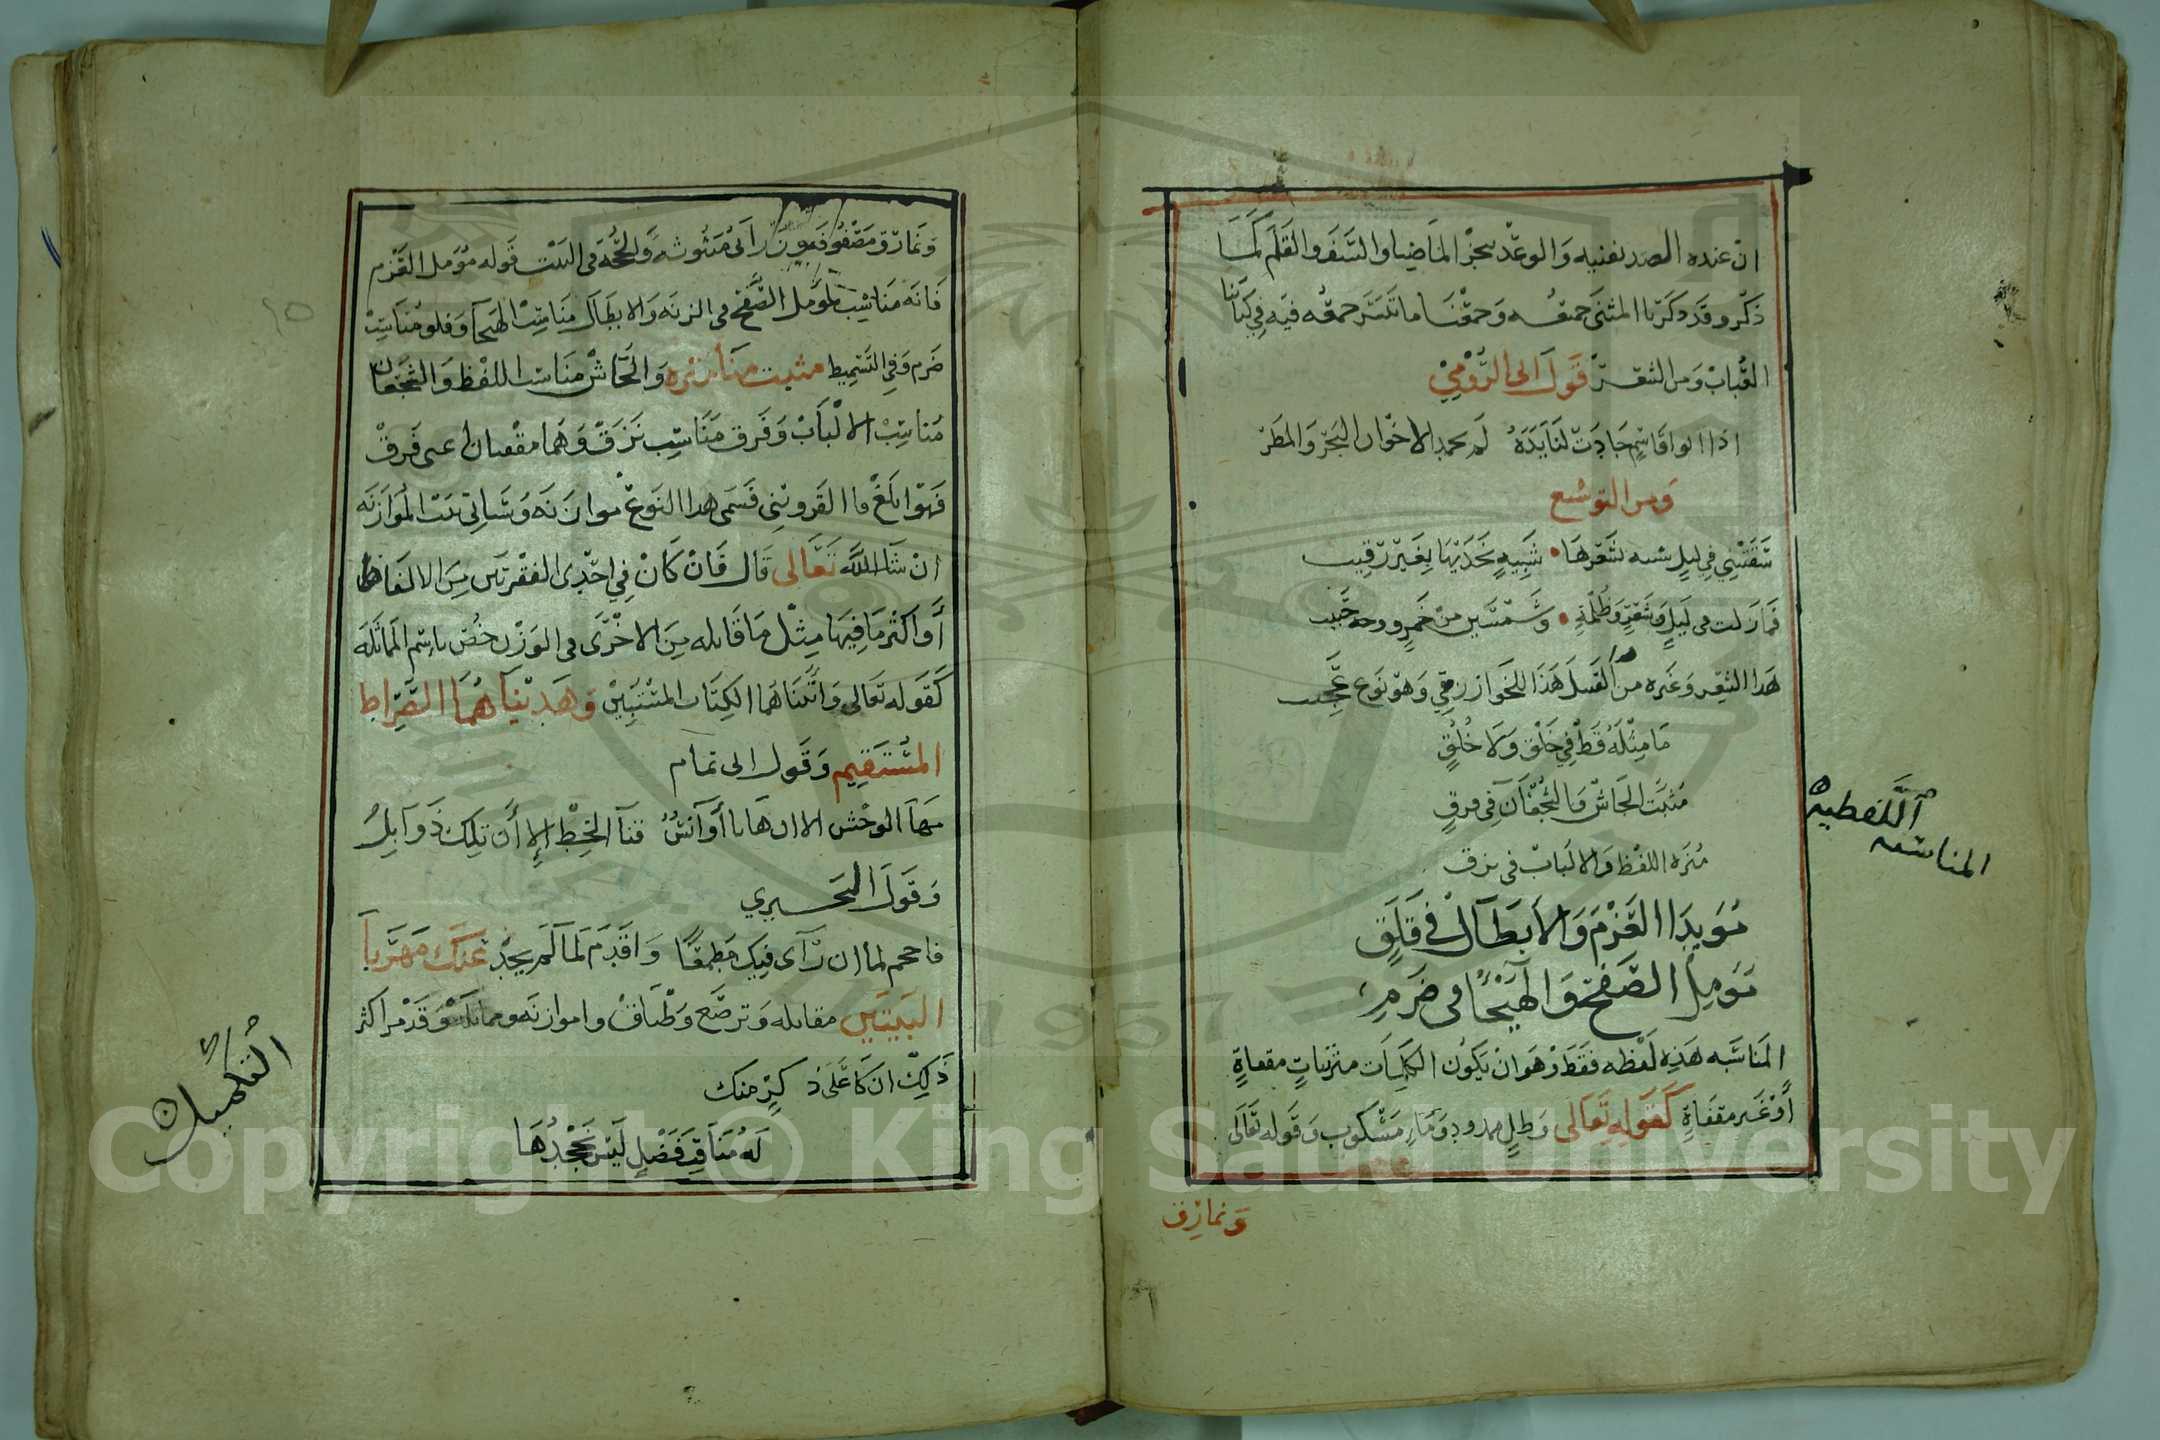 ان عنده الصدر نفنيه والوعد ينجز الماضيا والسيف والقلم كما
ذكر وقد ذكرنا المثنى جميعه وجمعنا ما تيسر جمعه فيه في كتابنا
العباب ومن الشعر قول ابن الرومي
اذا ابو قاسم جادت لنا يده لم يحمد الاجودان البحر والمطر
ومن التوشيع
سقتني في ليل شبيه بشعرها شبيه خديها بغير رقيب
فما زلت في ليلين شعر وظلمة وشمسين من خمر ووجه حبيب
هذا الشعر وغيره من القسل هذا للخوارزمي وهو نوع عجيب
ما مثله قط في خلق ولا خلق
مثبت الجاش والشجعان في فرق
منزه اللفظ والالباب في نزق
مويد العزم والابطال في قلق
مومل الصفح والهيجا في ضرم
اللفظيه
المناسبه
المناسبه هذه لفظه فقط وهو ان يكون الكلمات متزنات مقفاة
او غير مقفاة كقوله تعالى وظل ممدود وماء مسكوب وقوله تعالى
ونمارق
ونمارق مصفوفه وزرابي مبثوثه والحجة في البيت قوله مومل العزم
فانه مناسب لمومل الصفح في الزنه والابطال مناسب الهيجا وقلق مناسب
ضرم وفي التسميط مثبت منزه والجاش مناسب اللفظ والشجعان
مناسب الالباب وفرق مناسب نزق وهما مقفيان اعني فرق
فهو ابلغ واما القزويني فسمى هذا النوع موازنه وسياتي بيت الموازنه
ان شاء الله تعالى قال فان كان في احدى الفقرتين من الالفاظ
او اكثر ما فيها مثل ما قابله من الاخرى في الوزن خص باسم المماثله
كقوله تعالى واتيناهما الكتاب المستبين وهديناهما الصراط
المستقيم وقول ابي تمام
مها الوحش الا ان هاتا اوانس قنا الخط الا ان تلك ذوابل
وقول البحتري
فاحجم لما ان رآى فيك مطمعا واقدم لما لم يجد عنك مهربا
البيتين مقابله وترصيع وطباق وموازنه ومماثله وقد مر اكثر
ذلك ان كا على ذكر منك
له مناقب فضل ليس نجحدها
التكميل
Copyright © King Saud University
1957